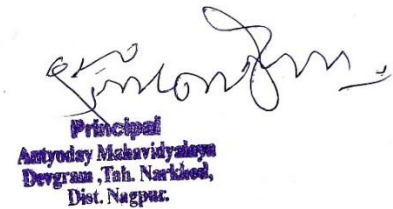 Principal
Antyoday Mahavidyalaya
Devgram ,Tah. Narkhed,
Dist. Nagpur.